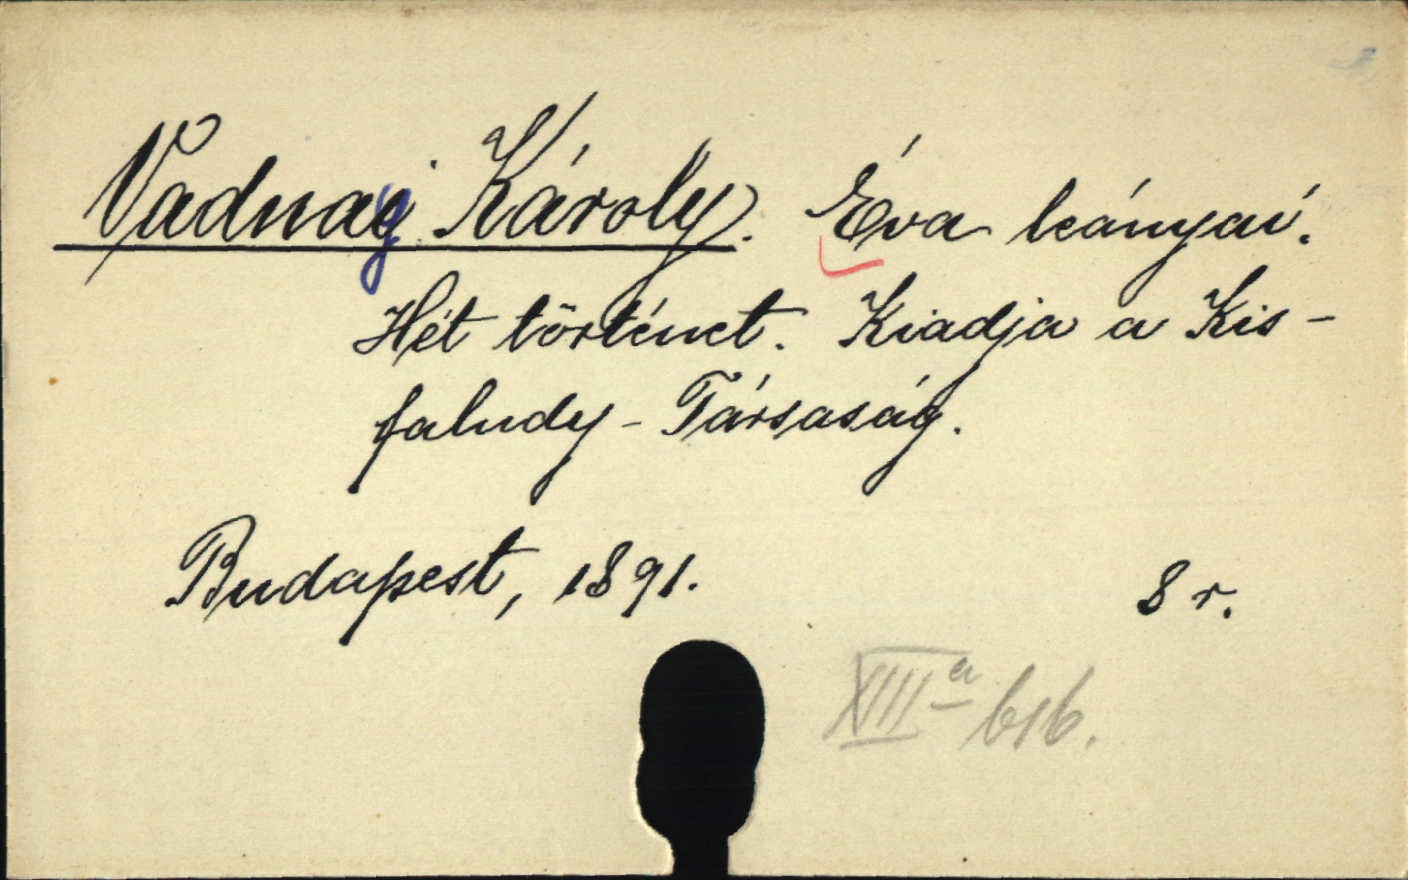 Vadnay Károly. Éva leányai.
Hét történet. Kiadja a Kis-
faludy-Társaság.
Budapest, 1891. 8 r.
XIII a 616.